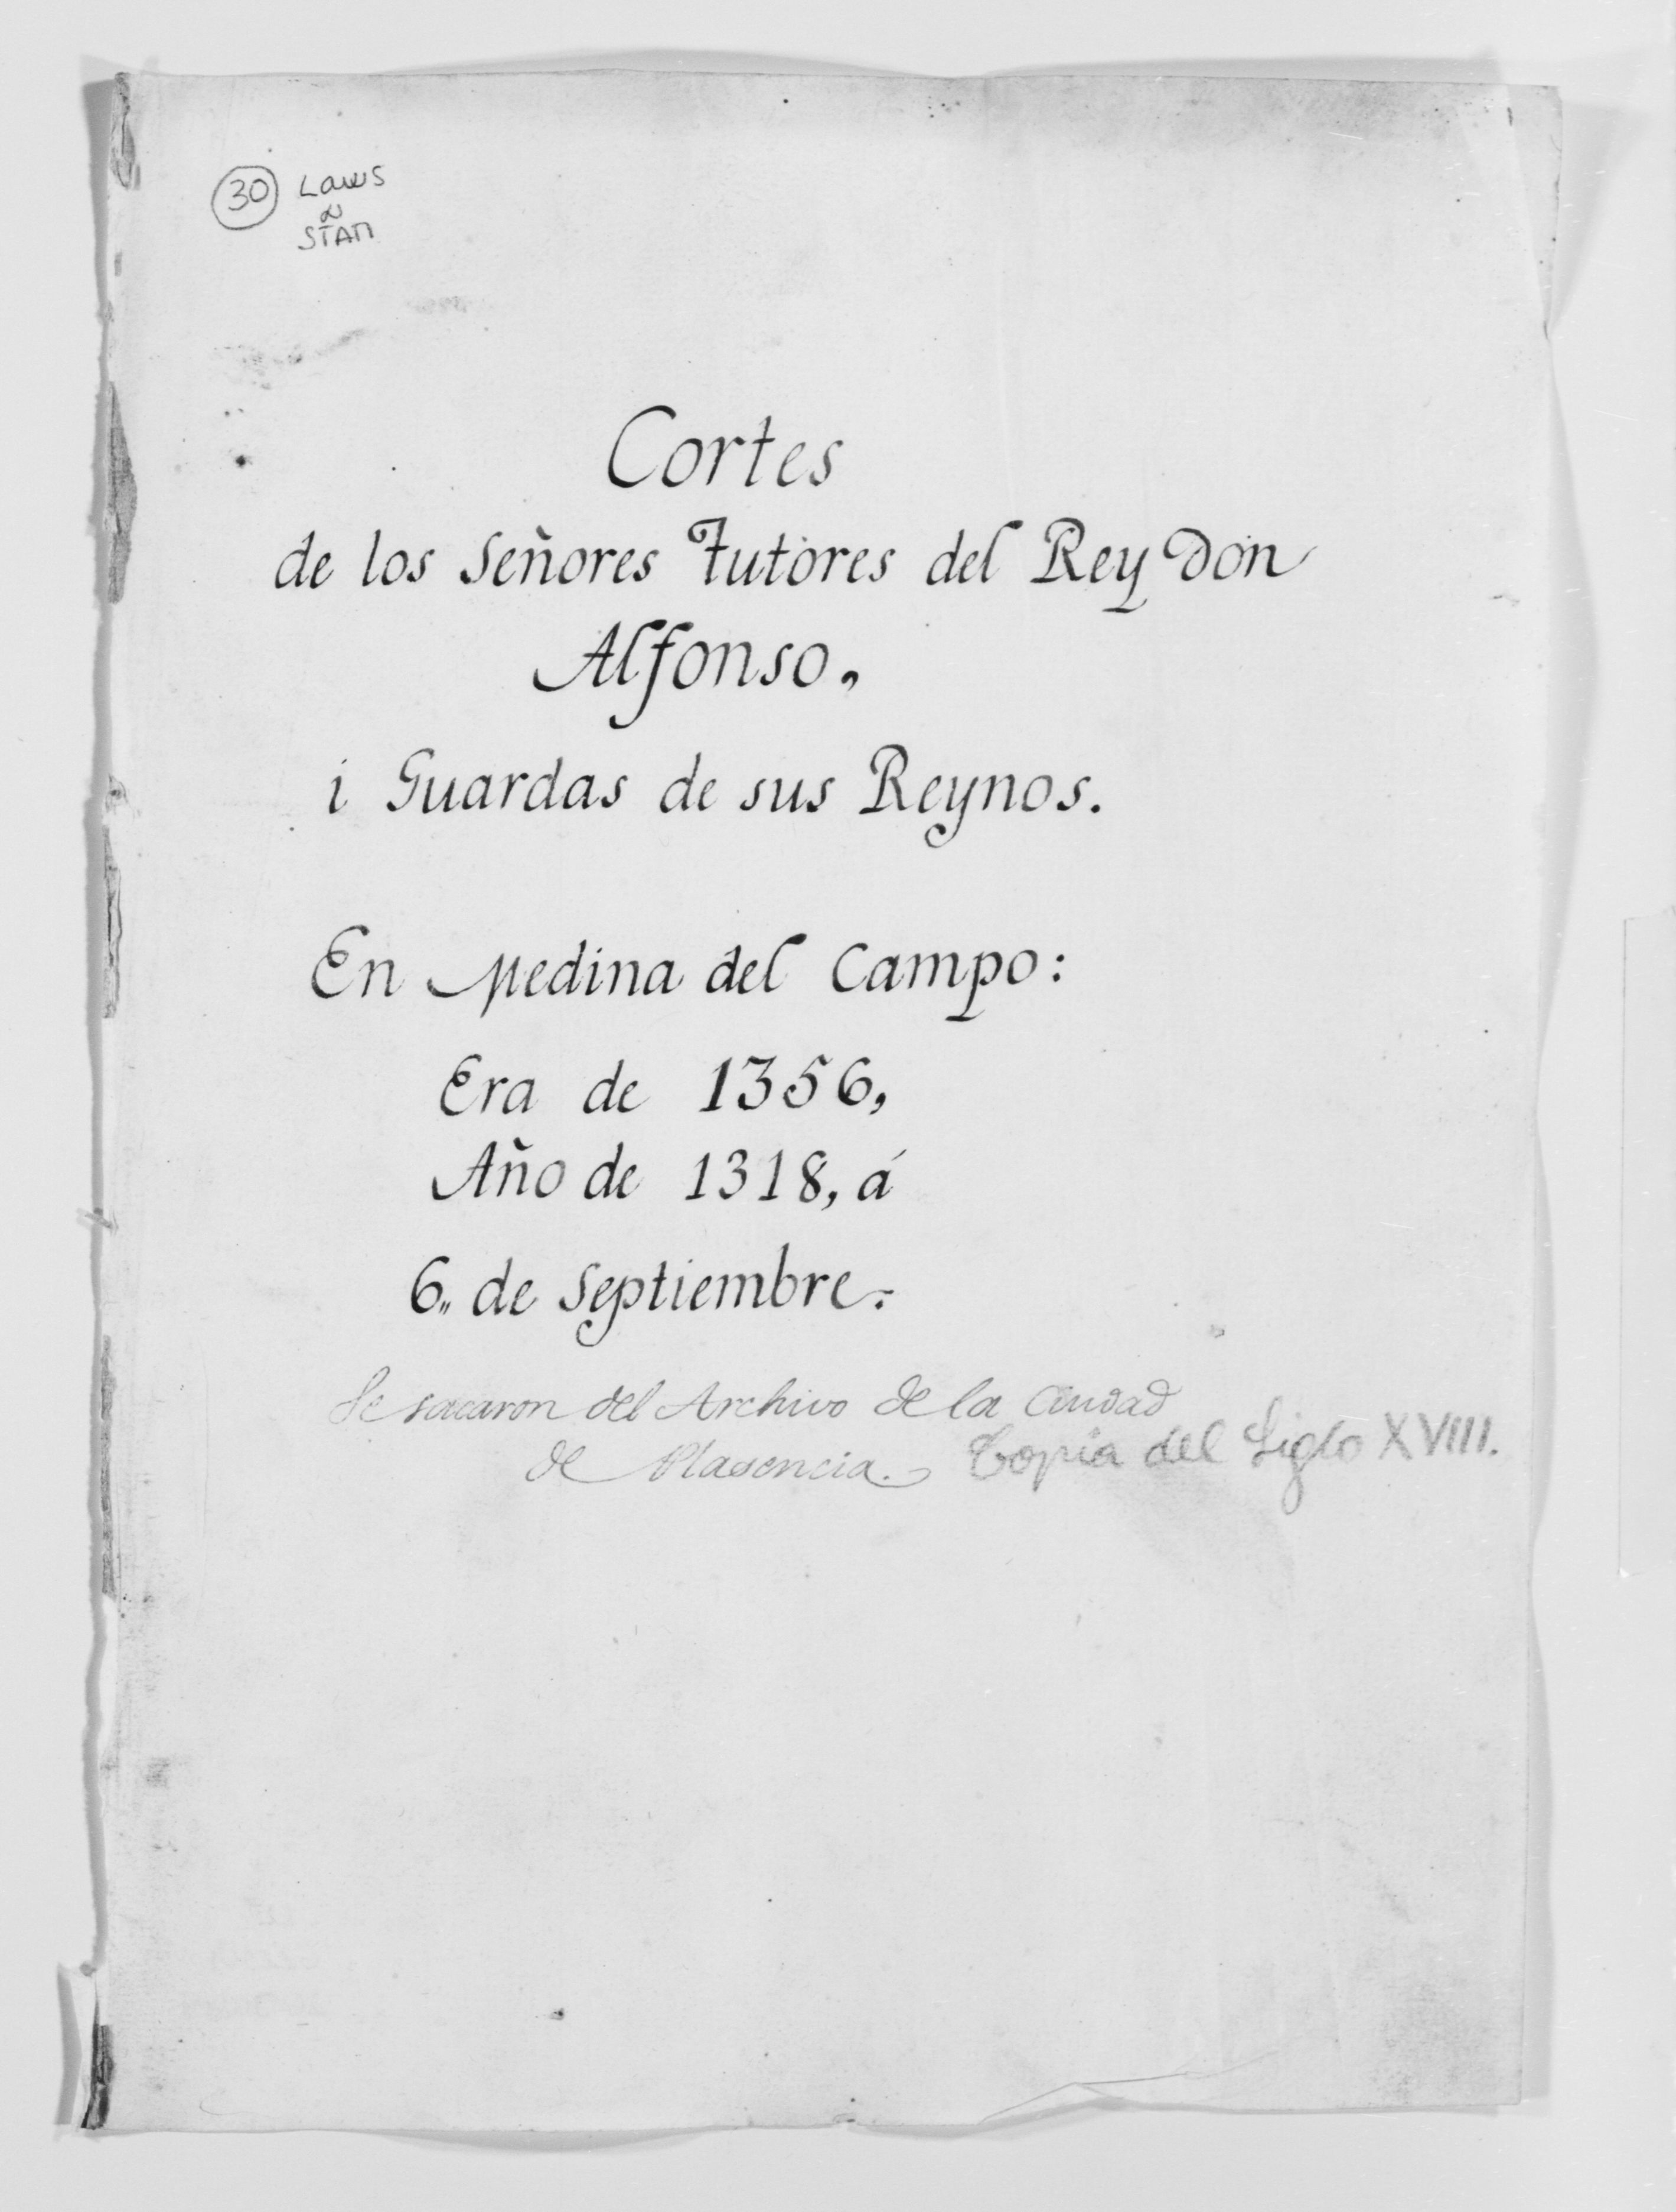 30 Laws
&
STAT
Cortes
de los Señores Tutores del Rey Don
Alfonso.
i Guardas de sus Reynos.
En Medina del Campo:
Era de 1356,
Año de 1318, á
6.. de Septiembre.
Se sacaron del Archivo de la Ciudad
de Plasencia. Copia del Siglo XVIII.